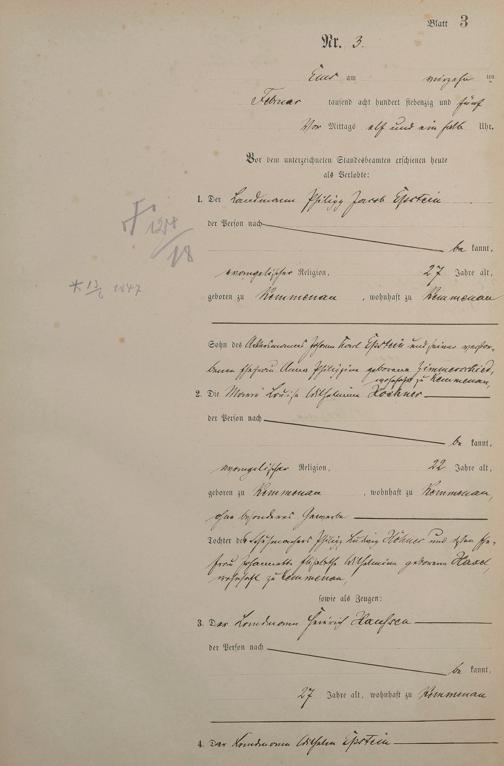 Blatt 3
Nr. 3.
Ems am vierzehn ten
Februar tausend acht hundert siebenzig und fünf
Vor Mittags elf und ein halb Uhr.
Vor dem unterzeichneten Standesbeamten erschienen heute
als Verlobte:
1. Der Landmann Philipp Jacob Epstein
der Person nach
be kannt,
evangelischer Religion, 27 Jahre alt,
* 13/6 1847
geboren zu Kemmenau, wohnhaft zu Kemmenau
Sohn des Ackermannes Johann Karl Epstein und seiner verstor-
benen Ehefrau Anna Philippine geborene Zimmerschied,
wohnhaft zu Kemmenau,
2. Die Marie Louise Wilhelmine Höhner
der Person nach
be kannt,
evangelischer Religion, 22 Jahre alt,
geboren zu Kemmenau, wohnhaft zu Kemmenau,
ohne besonderes Gewerbe
Tochter des Philipp Ludwig Höhner und dessen Ehe-
frau Johannette Elisabethe Wilhelmine geborene
wohnhaft zu Kemmenau,
sowie als Zeugen:
3. Der Landmann Heinrich
der Person nach
be kannt,
27 Jahre alt, wohnhaft zu Kemmenau
4. Der Landmann Wilhelm Epstein